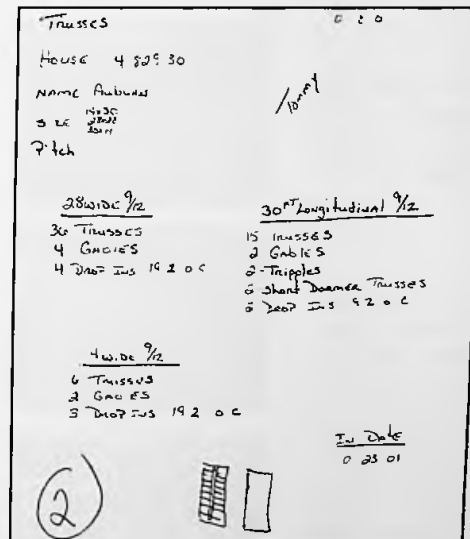 Trusses
0 2 0
House 4 829 30
Name Auburn
Size
Pitch
Tommy
28 wide 9/12
36 Trusses
4 Gables
4 Drop Ins 19 2 o c
30 FT Longitudinal 9/12
15 Trusses
2 Gables
2-Tripples
6 Short Dormer Trusses
6 Drop Ins 9 2 o c
4 wide 9/12
6 Trusses
2 Gables
3 Drop Ins 19 2 o c
In Date
0 23 01
2